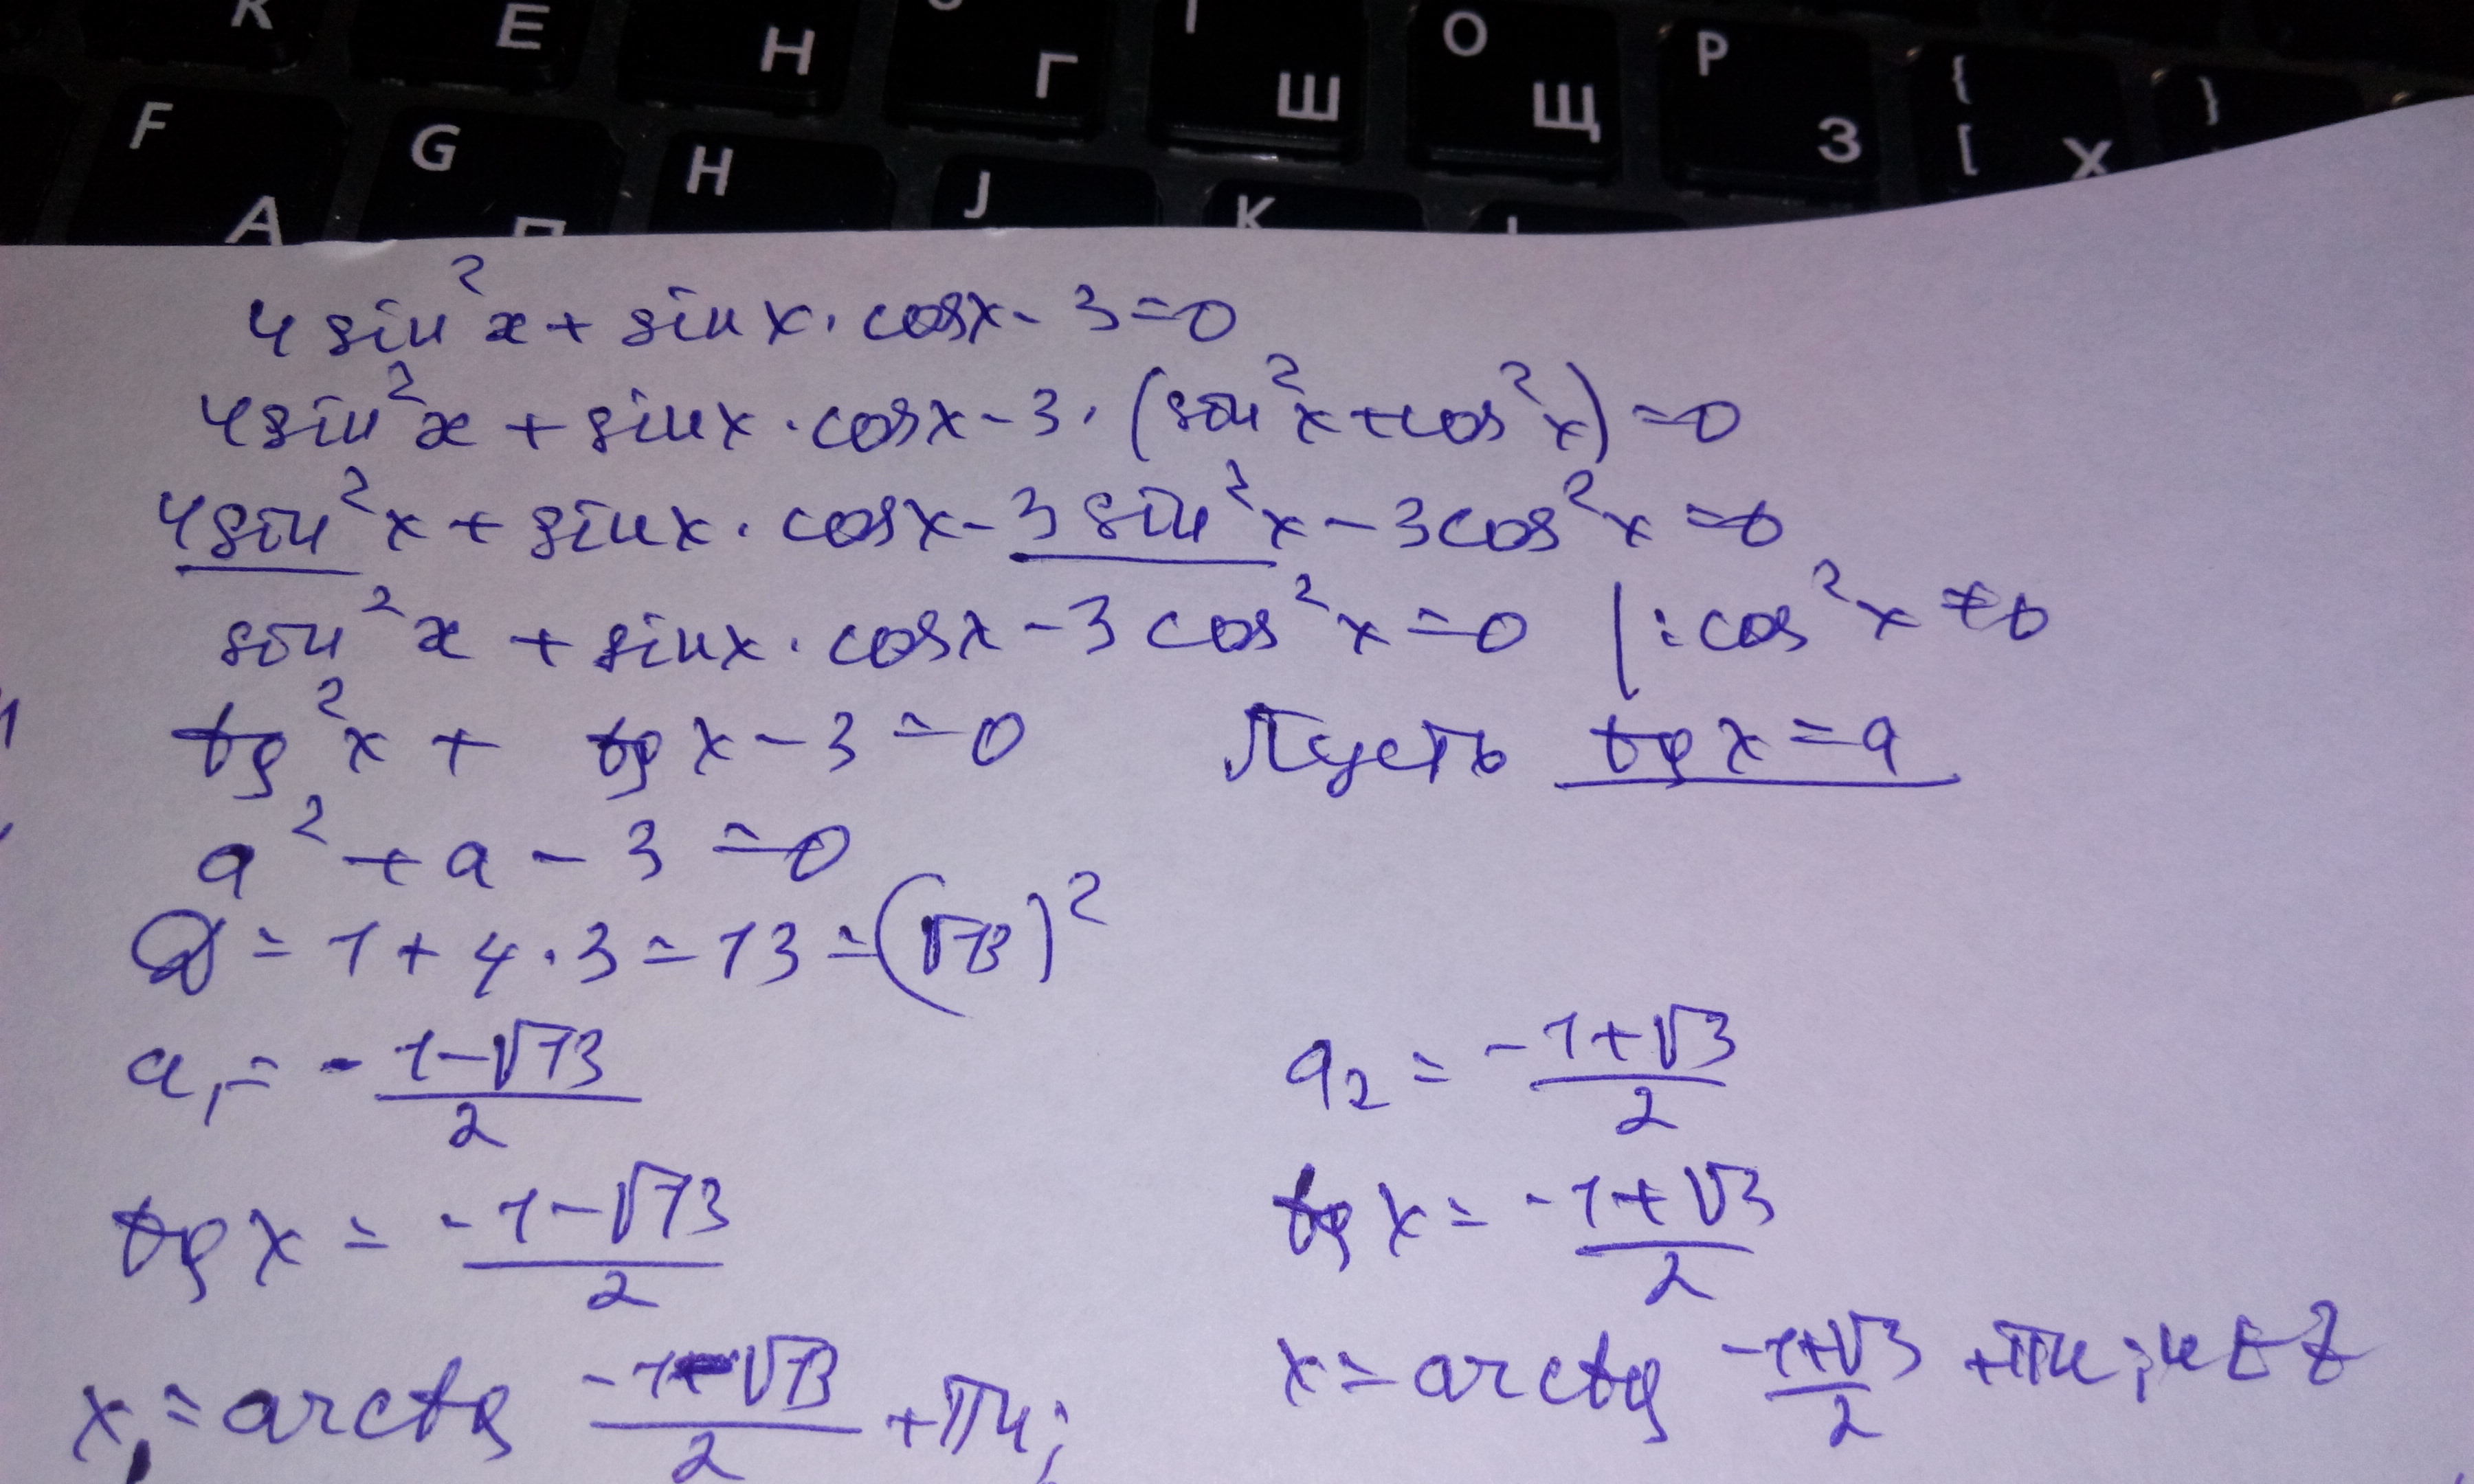 K E H Г Ш O Щ P З { [ Х }
F A G П H J K L
4 sin²x + sin x · cosx - 3 = 0
4sin²x + sinx · cosx - 3 · (sin²x + cos²x) = 0
4sin²x + sinx · cosx - 3 sin²x - 3cos²x = 0
sin²x + sinx · cosx - 3 cos²x = 0 | : cos²x ≠ 0
tg²x + tg x - 3 = 0 Пусть tg x = a
a² + a - 3 = 0
D = 1 + 4 · 3 = 13 = (√13)²
a₁ = -1-√13/2 a₂ = -1+√3/2
tg x = -1-√13/2 tg x = -1+√3/2
x₁ = arctg -1-√13/2 + πn; x = arctg -1+√3/2 + πn; n ∈ Z